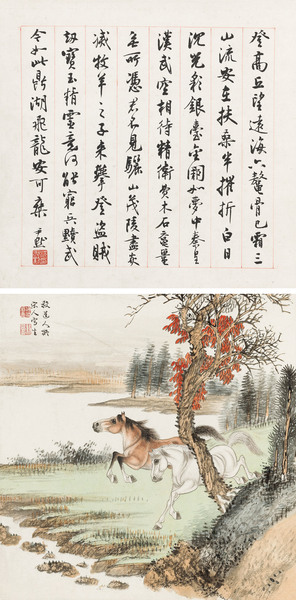 登高丘望遠海六鰲骨已霜三
山流安在扶桑半摧折白日
沉光彩銀臺金闕如夢中秦皇
漢武空相待精衛費木石黿鼉
無所憑君不見驪山茂陵盡灰
滅牧羊之子來攀登盜賊
劫寶玉精靈竟何能窮兵黷武
今如此鼎湖飛龍安可乘 尹默
宋人